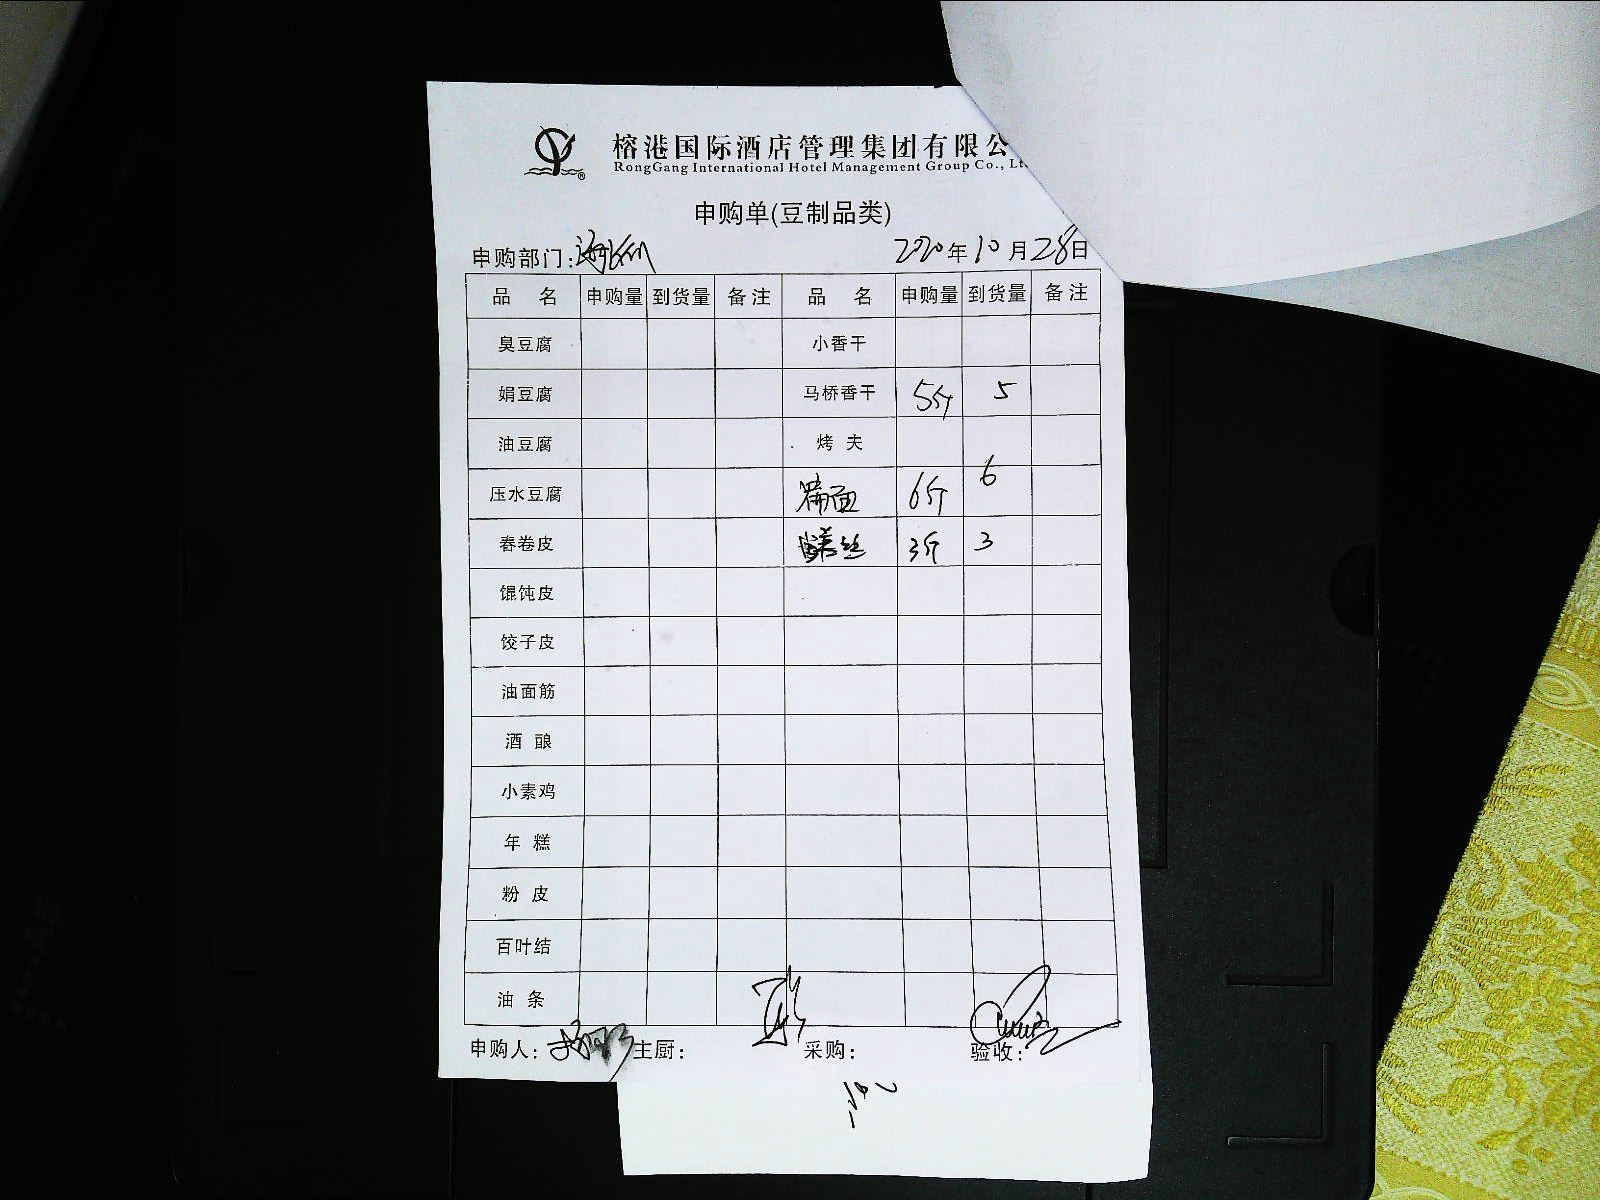 榕港国际酒店管理集团有限公
RongGang International Hotel Management Group Co., Lt
申购单(豆制品类)
申购部门: 2020年10月28日
品名 申购量 到货量 备注 品名 申购量 到货量 备注
臭豆腐 小香干
娟豆腐 马桥香干 5斤 5
油豆腐 烤夫
压水豆腐 6斤 6
春卷皮 3斤 3
馄饨皮
饺子皮
油面筋
酒酿
小素鸡
年糕
粉皮
百叶结
油条
申购人: 主厨: 采购: 验收: